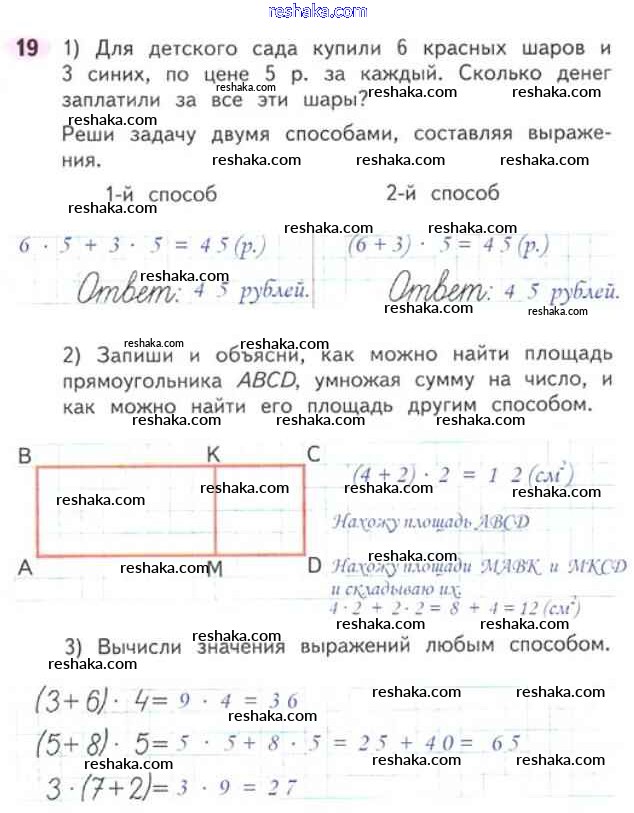 www.reshaka.com
reshaka.com
19 1) Для детского сада купили 6 красных шаров и
3 синих, по цене 5 р. за каждый. Сколько денег
reshaka.com
заплатили за все эти шары? reshaka.com reshaka.com
Реши задачу двумя способами, составляя выраже-
ния. reshaka.com reshaka.com
1-й способ 2-й способ
reshaka.com
reshaka.com reshaka.com
6 · 5 + 3 · 5 = 4 5 (р.) (6 + 3) · 5 = 4 5 (р.)
reshaka.com reshaka.com
Ответ: 4 5 рублей. Ответ: 4 5 рублей.
reshaka.com
reshaka.com reshaka.com
2) Запиши и объясни, как можно найти площадь
прямоугольника ABCD, умножая сумму на число, и
как можно найти его площадь другим способом.
reshaka.com reshaka.com reshaka.com
B K C
(4 + 2) · 2 = 1 2 (см²)
reshaka.com reshaka.com reshaka.com
Нахожу площадь ABCD
reshaka.com
A reshaka.com M D
Нахожу площади МАВК и МКCD
и складываю их.
4 · 2 + 2 · 2 = 8 + 4 = 12 (см²)
reshaka.com reshaka.com
3) Вычисли значения выражений любым способом.
reshaka.com reshaka.com
(3 + 6) · 4 = 9 · 4 = 3 6 reshaka.com reshaka.com
reshaka.com
(5 + 8) · 5 = 5 · 5 + 8 · 5 = 2 5 + 4 0 = 6 5
reshaka.com reshaka.com reshaka.com
3 · (7 + 2) = 3 · 9 = 2 7
reshaka.com reshaka.com